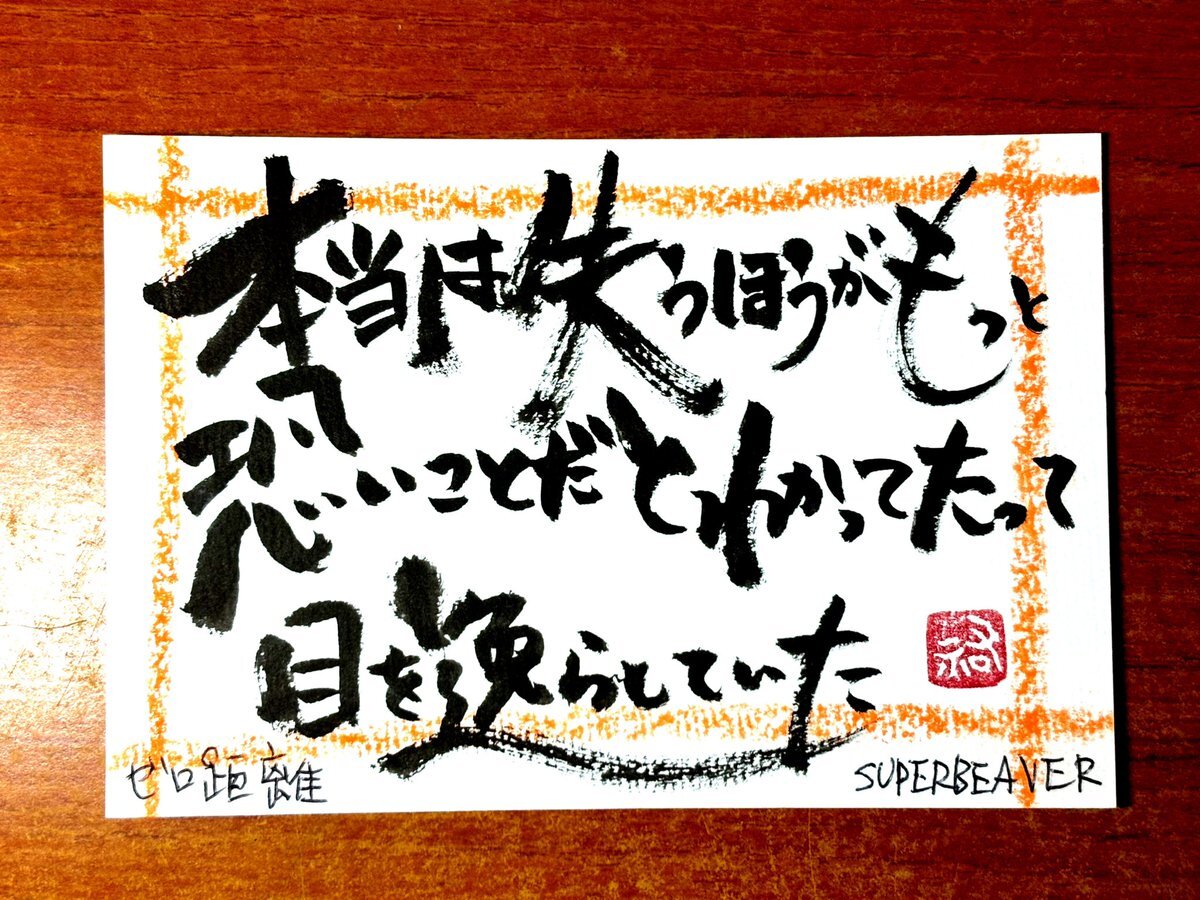 本当は失うほうがもっと
恐いことだとわかってたって
目を逸らしていた
ゼロ距離
SUPERBEAVER